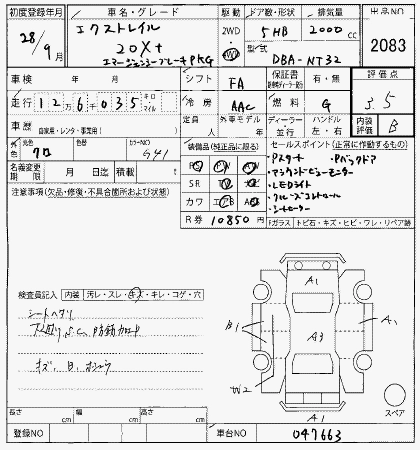 初度登録年月
車名・グレード
駆動
ドア数・形状
排気量
出品NO
28/9月
エクストレイル
20X+
エマージェンシーブレーキPKG
2WD
4WD
5HB
2000 cc
型式
DBA-NT32
2083
車検
年 月
シフト
FA
保証書
有・無
評価点
走行
12万6千035
キロ
マイル
冷房
AAC
燃料
G
3.5
車歴
自家用・レンタ・事業用( )
定員
人
外車モデル
年
ディーラー
並行
ハンドル
左・右
内装
評価
B
外色
元色
色替
カラーNO
クロ
G41
装備品(純正品に限る)
セールスポイント(正常に作動するもの)
名義変更
期限
月 日
積載
SR
カワ
エアB
R券
10850円
・Pスタート
・Pバックドア
・アラウンドビューモニター
・LEDライト
・クルーズコントロール
・シートヒーター
注意事項(欠品・修復・不具合箇所および状態)
Fガラス
トビ石・キズ・ヒビ・ワレ・リペア跡
検査員記入
内装
汚レ・スレ・キズ・キレ・コゲ・穴
シートヘタリ
A1
B1
A3
A1
W2
A1
スペア
長さ
cm
幅
cm
高さ
cm
登録NO
車台NO
047663